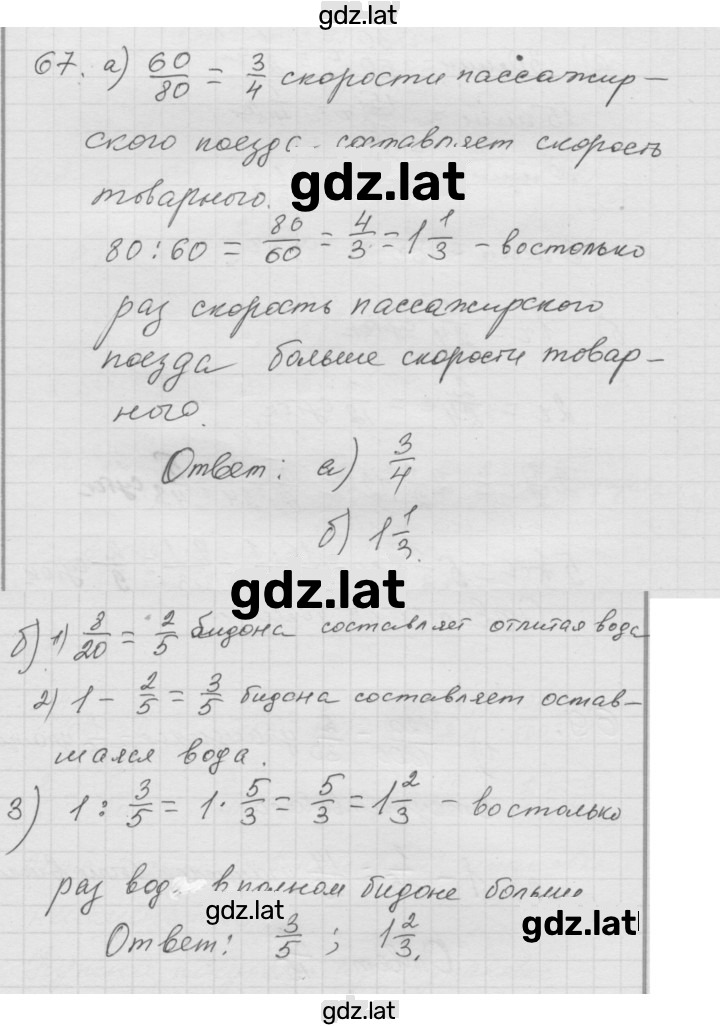 gdz.lat
67. а) 60/80 = 3/4 скорости пассажир-
ского поезда составляет скорость
товарного.
gdz.lat
80 : 60 = 80/60 = 4/3 = 1 1/3 - востолько
раз скорость пассажирского
поезда больше скорости товар-
ного.
Ответ: а) 3/4
б) 1 1/3.
gdz.lat
б) 1) 8/20 = 2/5 бидона составляет отлитая вода
2) 1 - 2/5 = 3/5 бидона составляет остав-
шаяся вода.
3) 1 : 3/5 = 1 · 5/3 = 5/3 = 1 2/3 - востолько
раз вод в полном бидоне больше
gdz.lat
gdz.lat
Ответ: 3/5 ; 1 2/3.
gdz.lat